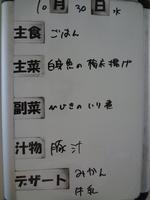 10月30日 水
主食 ごはん
主菜 白身魚の梅大揚げ
副菜 ひじきのいり煮
汁物 豚汁
デザート みかん
牛乳